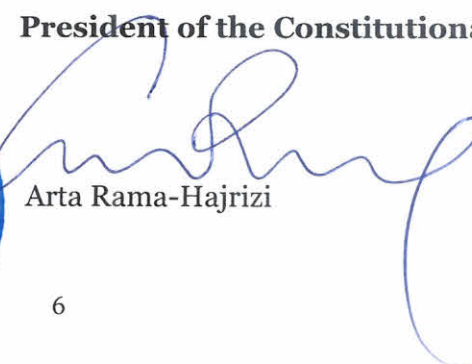 President of the Constitutiona
Arta Rama-Hajrizi
6